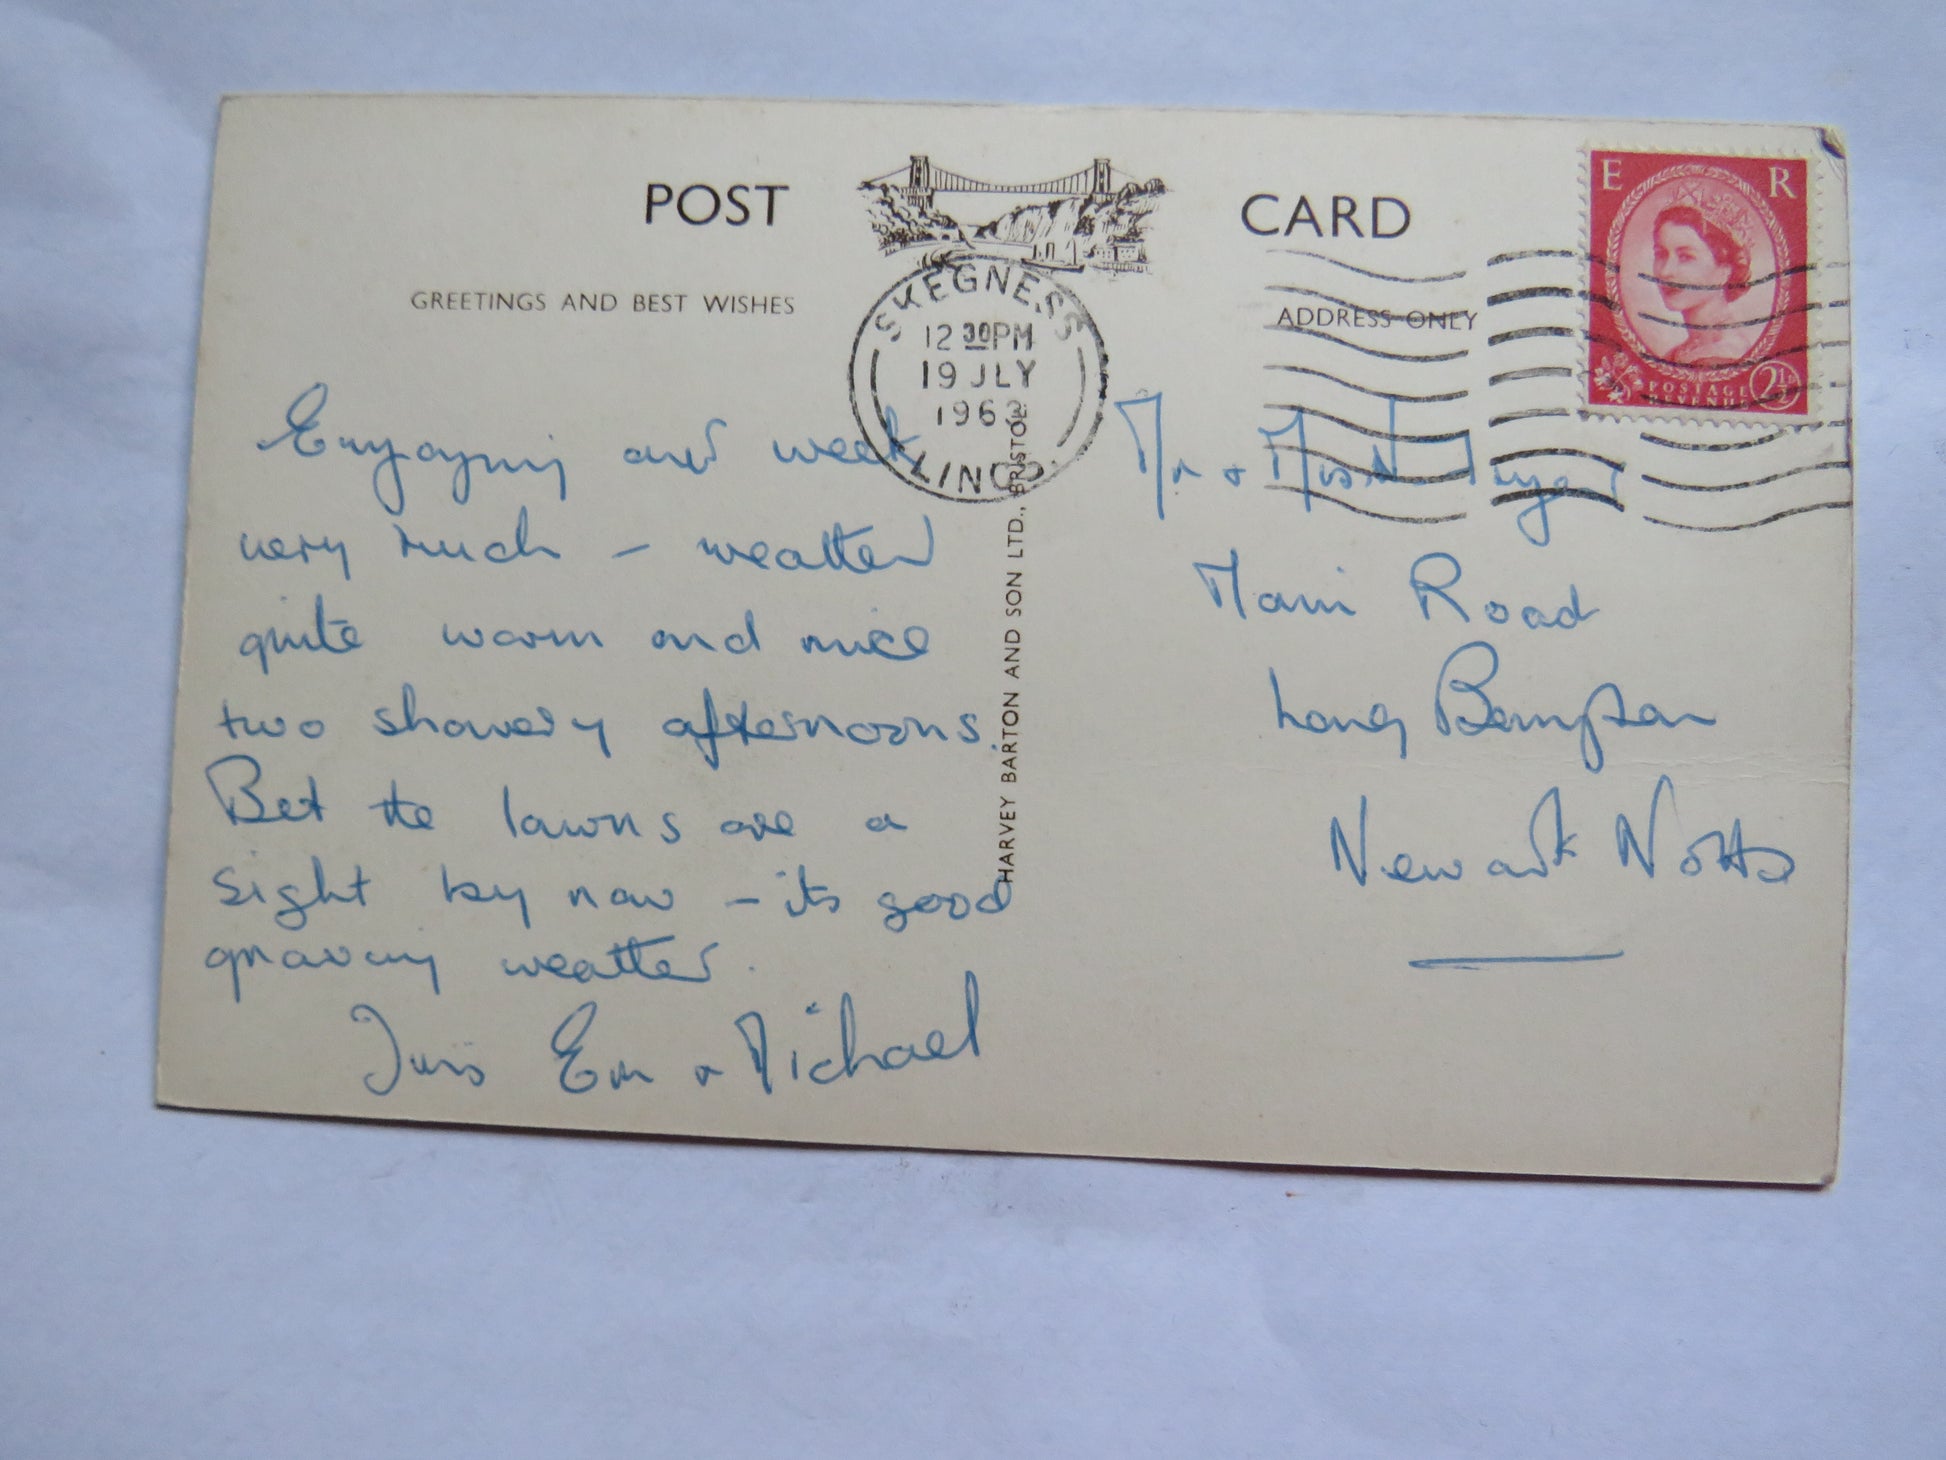 POST CARD
GREETINGS AND BEST WISHES
ADDRESS ONLY
E R
POSTAGE
REVENUE
2½
SKEGNESS
12 30 PM
19 JLY
196
LINCS
HARVEY BARTON AND SON LTD., BRISTOL
Enjoying our week
very much – weather
quite warm and nice
two showery afternoons.
Bet the lawns are a
sight by now – its good
growing weather.
Em & Michael
Mr & Mrs N.
Main Road
Long Bennington
Newark Notts